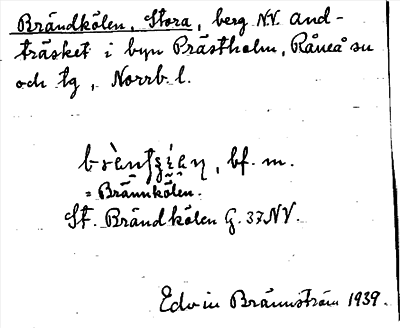 Brändkölen, Stora, berg NV And-
träsket i byn Prästholm, Råneå sn
och tg, Norrb. l.
bf. m.
= Brännkölen.
St. Brändkölen G. 37 NV.
Edvin Brännström 1939.